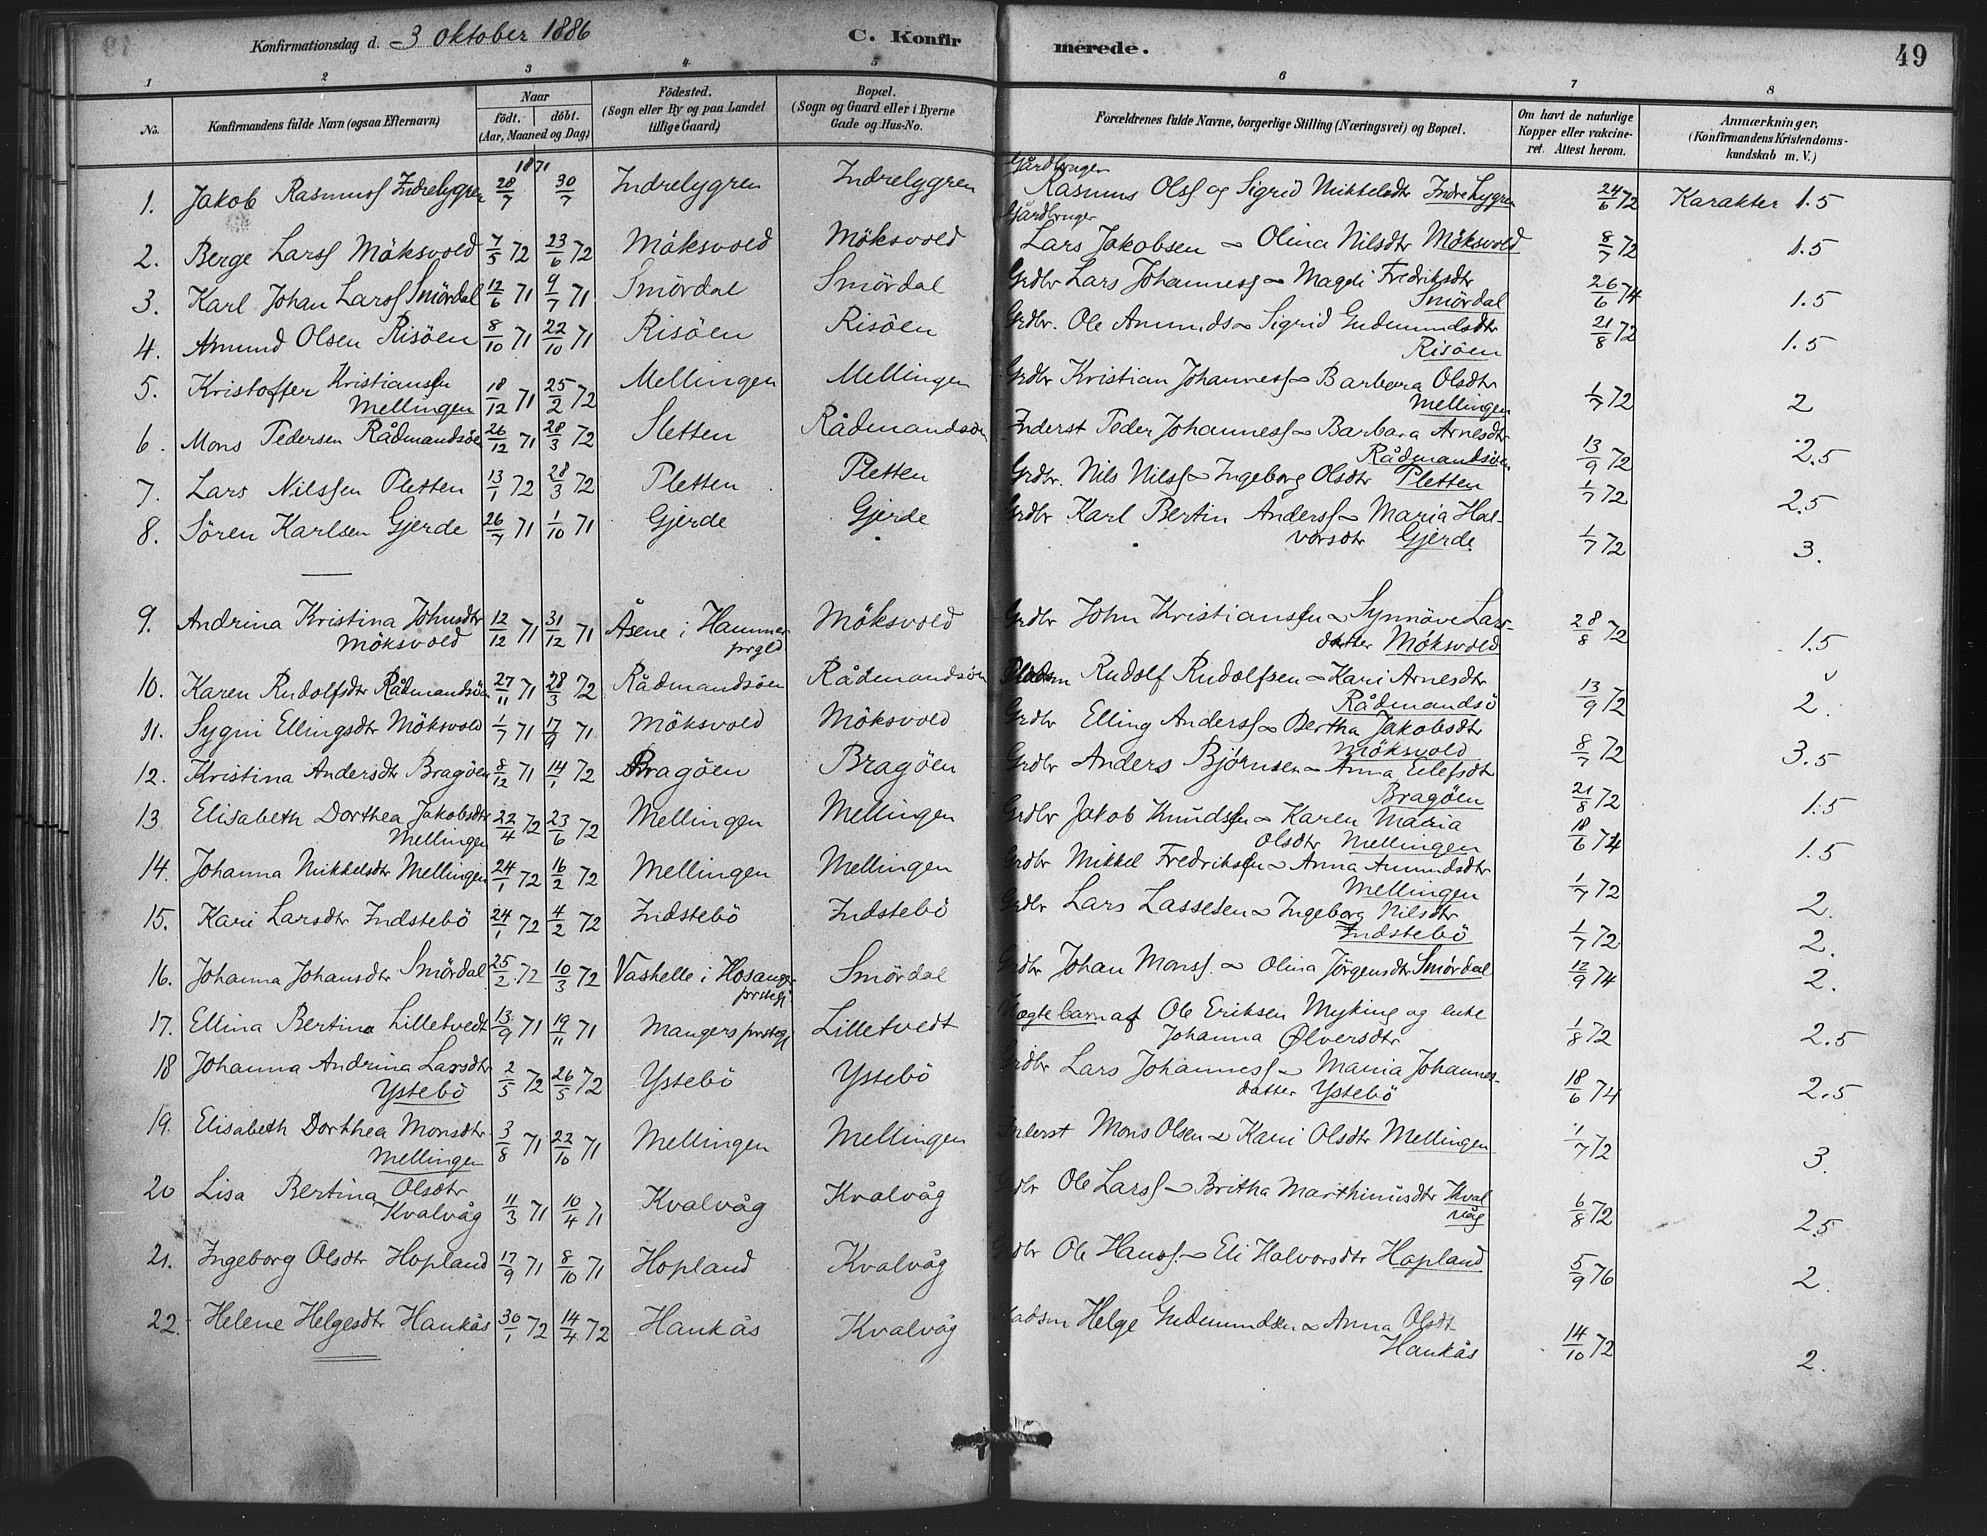 Konfirmationsdag d. 3 Oktober 1886 C. Konfirmerede. 49
1 2 3 4 5 6 7 8
No. Konfirmandens fulde Navn (ogsaa Efternavn) Naar födt, döbt. (Aar, Maaned og Dag) Födested. (Sogn eller By og paa Landet tillige Gaard) Bopæl. (Sogn og Gaard eller i Byerne Gade og Hus-No. Forældrenes fulde Navne, borgerlige Stilling (Næringsvei) og Bopæl. Om havt de naturlige Kopper eller vakcineret. Attest herom. Anmærkninger, (Konfirmandens Kristendomskundskab m. V.)
1871
Gårdbruger
1. Jakob Rasmuss Indrelygren 28/7 30/7 Indrelygren Indrelygren Rasmus Olss og Sigrid Mikkelsdtr Indre Lygren 24/6 72 Karakter 1.5
Gårdbruger
2. Berge Larss Möksvold 7/5 72 23/6 72 Möksvold Möksvold Lars Jakobsen - Olina Nilsdtr Möksvold 8/7 72 1.5
3. Karl Johan Larss Smördal 12/6 71 9/7 71 Smördal Smördal Grdbr Lars Johanness - Magdi Fredriksdtr
Smördal 26/6 74 1.5
4. Amund Olsen Risöen 8/10 71 22/10 71 Risöen Risöen Grdbr. Ole Amunds - Sigrid Gudmundsdtr
Risöen 21/8 72 1.5
5. Kristoffer Kristianssen
Mellingen 18/12 71 25/2 72 Mellingen Mellingen Grdbr Kristian Johanness - Barbara Olsdtr
Mellingen 1/7 72 2
6. Mons Pedersen Rådmandsöen 26/12 71 28/3 72 Sletten Rådmandsöen Inderst Peder Johanness - Barbara Arnesdtr
Rådmandsöen 13/9 72 2.5
7. Lars Nilssen Pletten 13/1 72 28/3 72 Pletten Pletten Grdbr. Nils Nilss - Ingeborg Olsdtr Pletten 1/7 72 2.5
8. Sören Karlsen Gjerde 26/7 71 1/10 71 Gjerde Gjerde Grdbr Karl Bertin Anderss - Maria Hal-
vorsdtr Gjerde 1/7 72 3.
9. Andrina Kristina Johnsdtr
Möksvold 12/12 71 31/12 71 Åsene i Hammer
prgld Möksvold Grdbr John Kristianssen - Synnöve Lars-
datter Möksvold 28/8 72 1.5
10. Karen Rudolfsdtr Rådmandsöen 27/11 71 28/3 72 Rådmandsöen Rådmandsöen Pladsm Rudolf Rudolfsen - Kari Arnesdtr
Rådmandsö 13/9 72 2.
11. Sygni Ellingsdtr Möksvold 1/7 71 17/9 71 Möksvold Möksvold Grdbr Elling Anderss - Bertha Jakobsdtr
Möksvold 8/7 72 3.5
12. Kristina Andersdtr Bragöen 8/12 71 14/1 72 Bragöen Bragöen Grdbr Anders Björnsen - Anna Eilefsdtr
Bragöen 21/8 72 1.5
13 Elisabeth Dorthea Jakobsdtr
Mellingen 22/4 72 23/6 72 Mellingen Mellingen Grdbr Jakob Knudssen - Karen Maria
Olsdtr Mellingen 18/6 74 1.5
14. Johanna Mikkelsdtr Mellingen 24/1 72 16/2 72 Mellingen Mellingen Grdbr Mikkel Fredrikssen - Anna Amundsdtr
Mellingen 1/7 72 2.
15. Kari Larsdtr Indstebö 24/1 72 4/2 72 Indstebö Indstebö Grdbr Lars Lassesen - Ingeborg Nilsdtr
Indstebö 1/7 72 2.
16. Johanna Johansdtr Smördal 25/2 72 10/3 72 Vashelle i Hosanger
prstegj Smördal Grdbr Johan Monss. - Olina Jörgensdtr Smördal 12/9 74 2.
17. Ellina Bertina Lilletvedt 13/9 71 19/11 71 Mangers prstegj Lilletvedt Uægte barn af Ole Eriksen Myking og enke
Johanna Ølversdtr 1/8 72 2.5
18 Johanna Andrina Larsdtr
Ystebö 2/5 72 26/5 72 Ystebö Ystebö Grdbr Lars Johanness - Maria Johannes-
datter Ystebö 18/6 74 2.5
19. Elisabeth Dorthea Monsdtr
Mellingen 3/8 71 22/10 71 Mellingen Mellingen Inderst Mons Olsen - Kari Olsdtr Mellingen 1/7 72 3.
20 Lisa Bertina Olsdtr
Kvalvåg 11/3 71 10/4 71 Kvalvåg Kvalvåg Grdbr Ole Larss - Britha Marthinusdtr Kval
våg 6/8 72 2.5
21. Ingeborg Olsdtr Hopland 17/9 71 8/10 71 Hopland Kvalvåg Grdbr Ole Hanss. - Eli Halvorsdtr Hopland 5/9 76 2.
22. Helene Helgesdtr Haukås 30/1 72 14/4 72 Haukås Kvalvåg Pladsm Helge Gudmundsen - Anna Olsdt
Haukås 14/10 72 2.